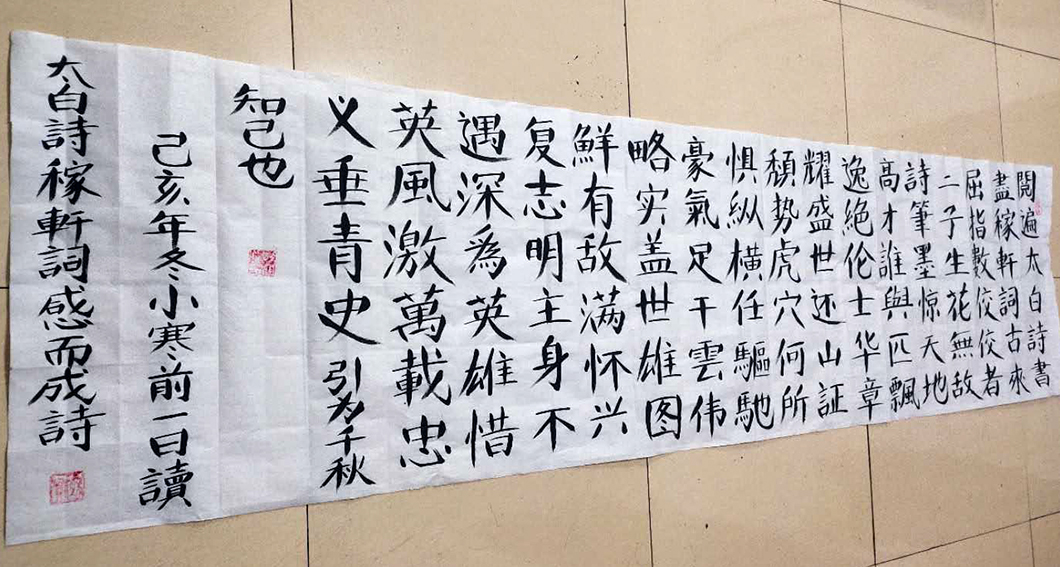 閱遍太白詩書
盡稼軒詞古來
屈指數佼佼者
二子生花無敌
詩筆墨惊天地
高才誰與匹飄
逸絕伦士华章
耀盛世还山証
頹势虎穴何所
惧纵横任驅馳
豪氣足干雲伟
略实盖世雄图
鮮有敌满怀兴
复志明主身不
遇深為英雄惜
英風激萬載忠
义垂青史引为千秋
知己也
己亥年冬小寒前一日讀
太白詩稼軒詞感而成詩